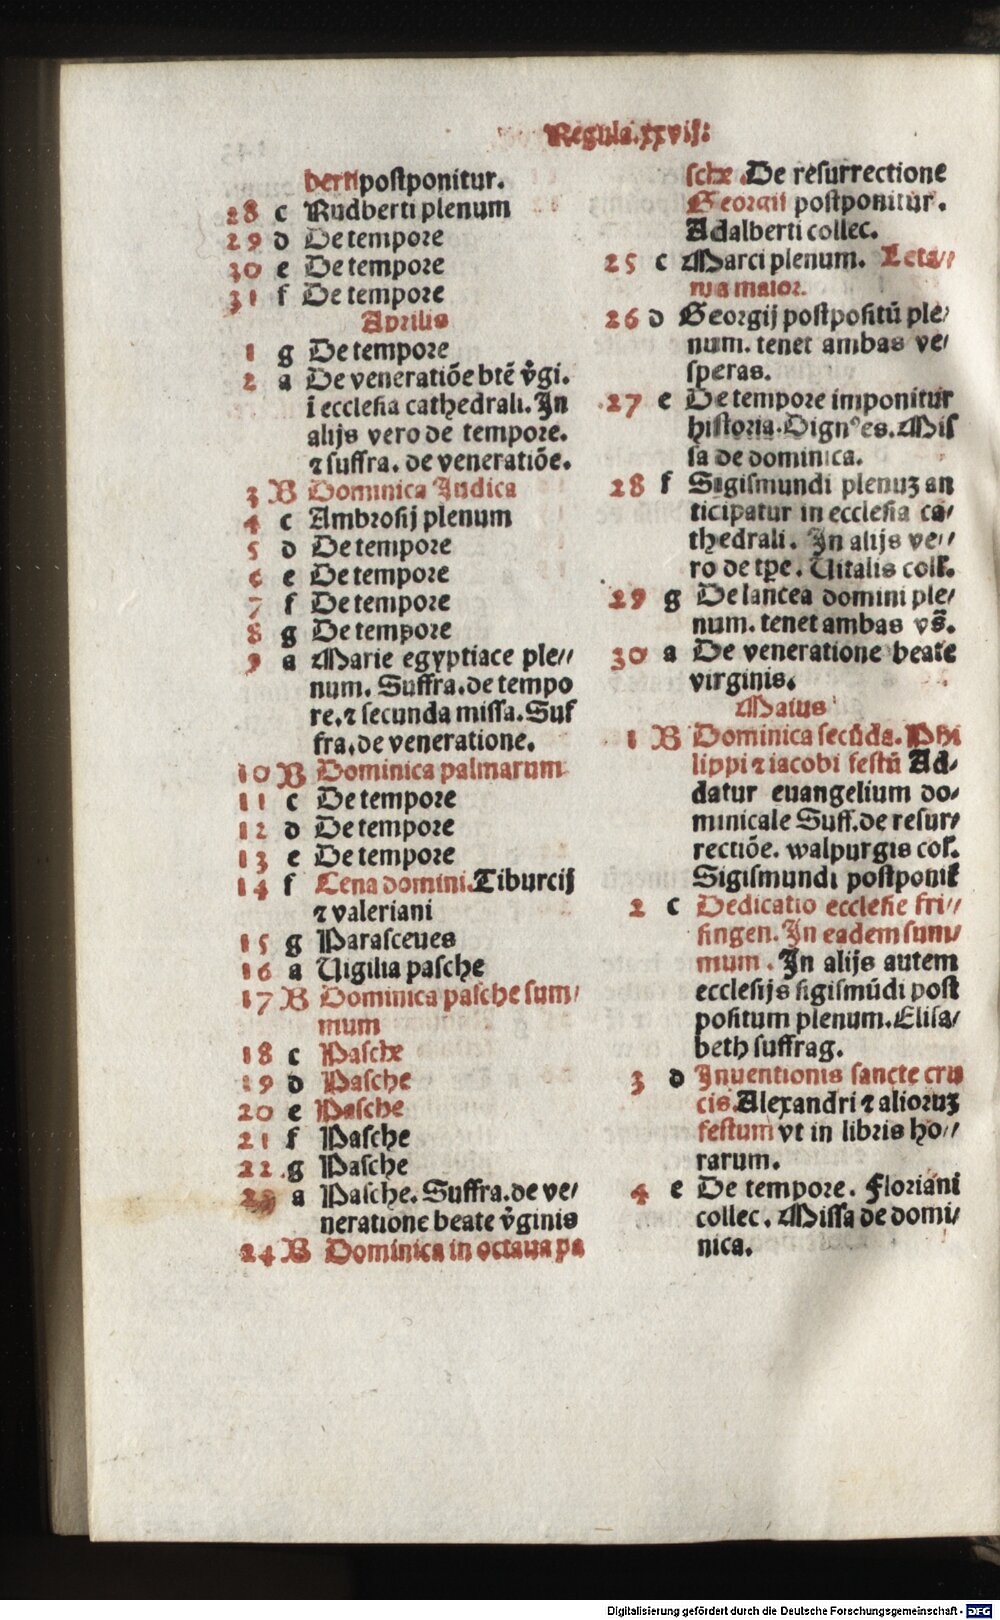 Regula.xxvij:
berti postponitur.
28 c Rudberti plenum
29 d De tempore
30 e De tempore
31 f De tempore
Aprilis
1 g De tempore
2 a De veneratiõe btẽ v̾gi.
ĩ ecclesia cathedrali. In
alijs vero de tempore.
⁊ suffra. de veneratiõe.
3 B Dominica Iudica
4 c Ambrosij plenum
5 d De tempore
6 e De tempore
7 f De tempore
8 g De tempore
9 a Marie egyptiace ple//
num. Suffra. de tempo
re. ⁊ secunda missa. Suf
fra. de veneratione.
10 B Dominica palmarum
11 c De tempore
12 d De tempore
13 e De tempore
14 f Cena domini. Tiburcij
⁊ valeriani
15 g Parasceues
16 a Uigilia pasche
17 B Dominica pasche sum/
mum
18 c Pasche
19 d Pasche
20 e Pasche
21 f Pasche
22 g Pasche
23 a Pasche. Suffra. de ve/
neratione beate v̾ginis
24 B Dominica in octaua pa
sche De resurrectione
Georgii postponitur.
Adalberti collec.
25 c Marci plenum. Leta//
nia maior.
26 d Georgij postpositũ ple/
num. tenet ambas ve/
speras.
27 e De tempore imponitur
historia. Dignꝰes. Mis
sa de dominica.
28 f Sigismundi plenuȝ an
ticipatur in ecclesia ca/
thedrali. In alijs ve//
ro de tpe. Uitalis coll.
29 g De lancea domini ple/
num. tenet ambas vs̃.
30 a De veneratione beate
virginis.
Maius
1 B Dominica secũda. Phi
lippi ⁊ iacobi festũ Ad/
datur euangelium do/
minicale Suff. de resur/
rectiõe. walpurgis col.
Sigismundi postponit̃
2 c Dedicatio ecclesie fri//
singen. In eadem sum/
mum. In alijs autem
ecclesijs sigismũdi post
positum plenum. Elisa/
beth suffrag.
3 d Inuentionis sancte cru
cis. Alexandri ⁊ alioruȝ
festum vt in libris ho//
rarum.
4 e De tempore. Floriani
collec. Missa de domi/
nica.
Digitalisierung gefördert durch die Deutsche Forschungsgemeinschaft - DFG